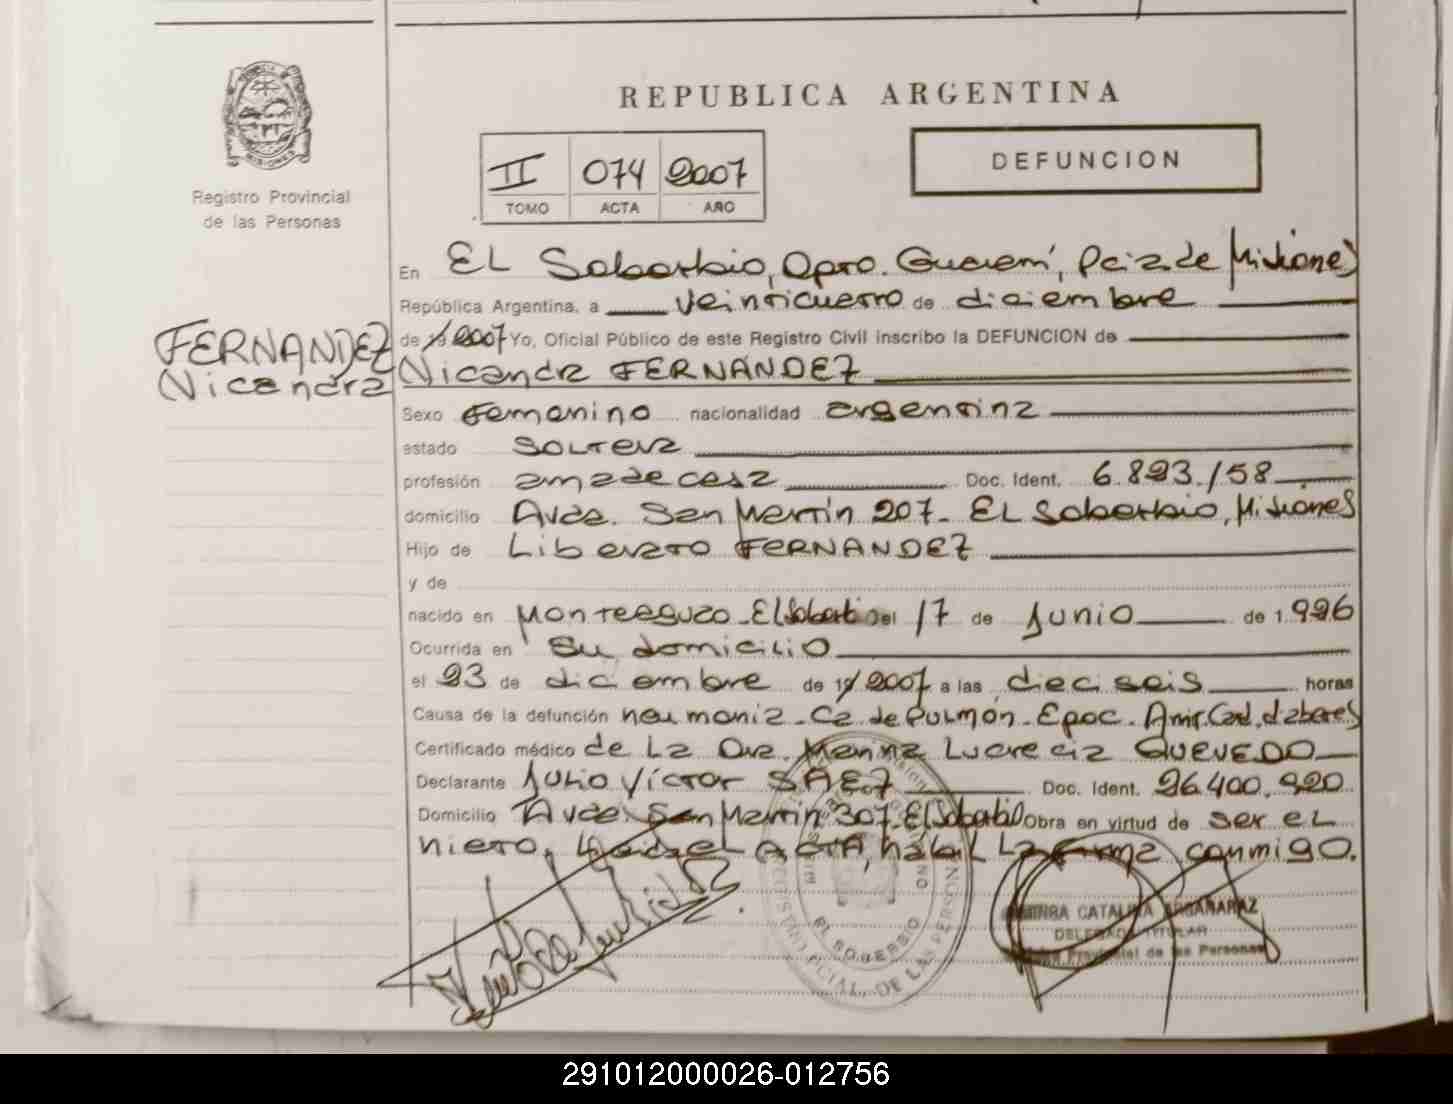 REPUBLICA ARGENTINA
DEFUNCION
II 074 2007
TOMO ACTA AÑO
Registro Provincial
de las Personas
En EL Soberbio, Dpto. Guaraní, Pcia de Misiones
República Argentina, a veinticuatro de diciembre
FERNANDEZ
Nicandra
de 19 2007 Yo, Oficial Público de este Registro Civil inscribo la DEFUNCION de
Nicandra FERNÁNDEZ
Sexo Femenino nacionalidad argentina
estado SOLTERA
profesión ama de casa Doc. Ident. 6.823./58
domicilio Avda. San Martín 207- EL Soberbio, Misiones
Hijo de Liberato FERNANDEZ
y de
nacido en Monteagudo-El Soberbio el 17 de Junio de 1.926
Ocurrida en su domicilio
el 23 de diciembre de 19 2007 a las dieciseis horas
Causa de la defunción neumonia-Ca de Pulmón-Epoc.
Certificado médico de La Dra. Marina Lucrecia QUEVEDO
Declarante Julio Víctor SAEZ Doc. Ident. 26.400.920
Domicilio Avda. San Martín 307-El Soberbio Obra en virtud de ser el
nieto, Leída el ACTA, La firma conmigo.
CATALINA ARGAÑARAZ
DELEGADA TITULAR
Provincial de las Personas
EL SOBERBIO
291012000026-012756